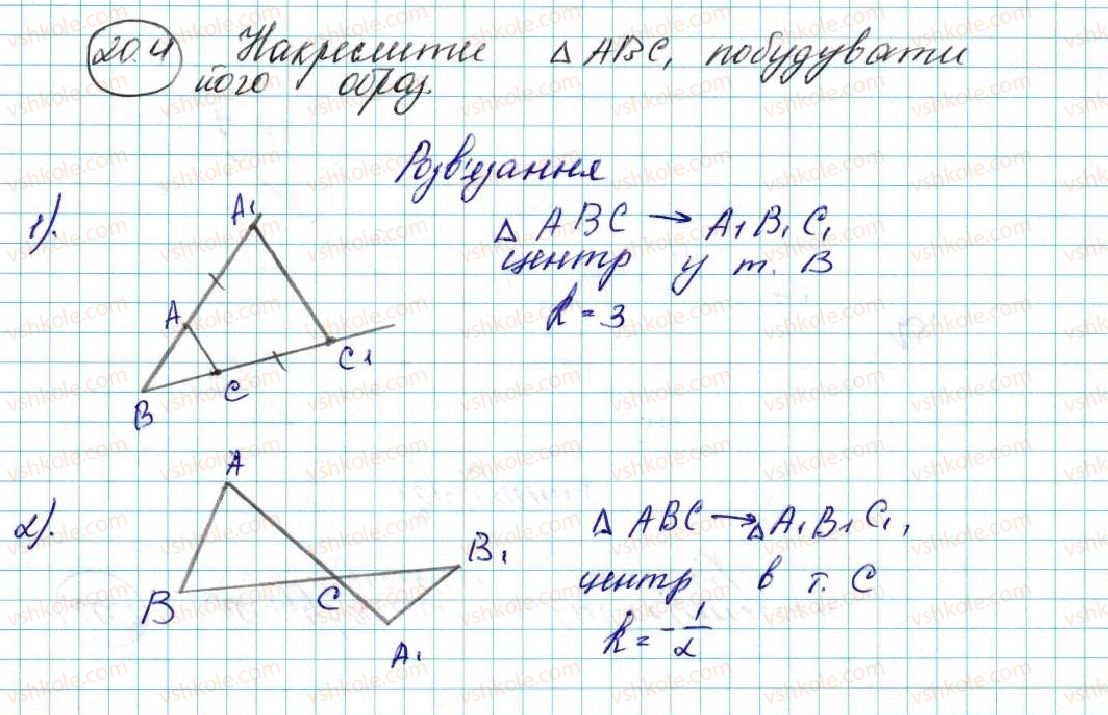 20.4 Накреслити △ ABC, побудувати
його образ.
Розв'язання
1).
A1
A
B
C
C1
△ ABC → A1 B1 C1
центр у т. В
k = 3
2).
A
B
C
B1
A1
△ ABC → △ A1 B1 C1,
центр в т. С
k = -1/2
vshkole.com